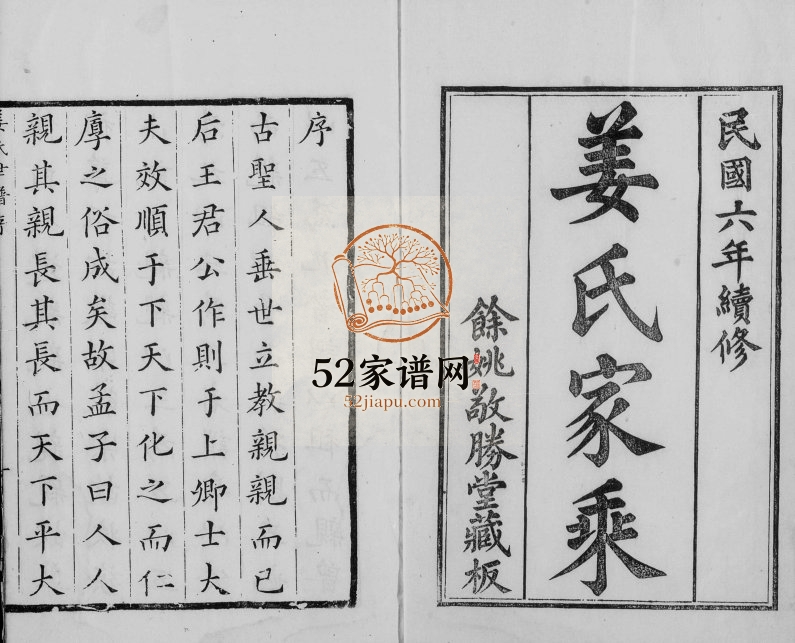 民國六年續修
姜氏家乘
餘姚敬勝堂藏板
序
古聖人垂世立教親親而已
后王君公作則于上卿士大
夫效順于下天下化之而仁
厚之俗成矣故孟子曰人人
親其親長其長而天下平大
姜氏世譜序
52家谱网
52jiapu.com